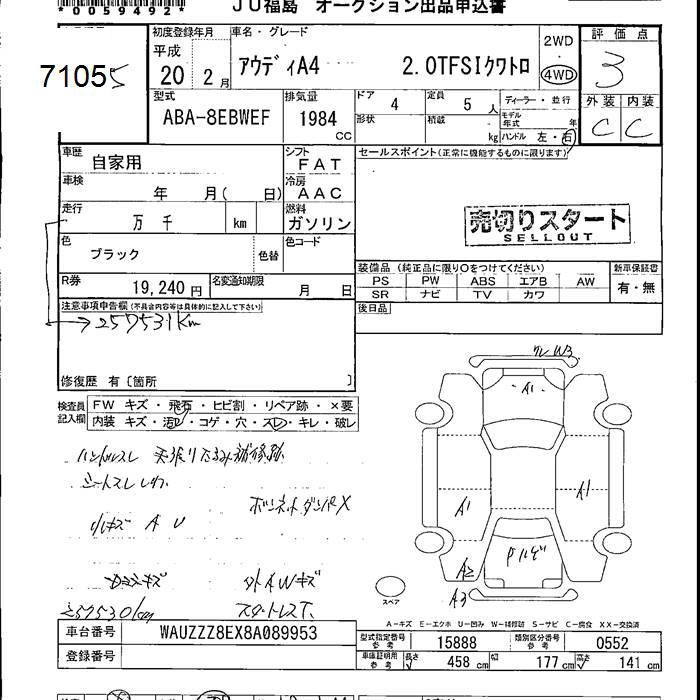 *0059492*
JU福島 オークション出品申込書
71055
初度登録年月 車名・グレード
平成 20 年 2 月
アウディA4 2.0TFSIクワトロ
2WD
4WD
評価点
3
外装 内装
C C
型式
ABA-8EBWEF
排気量
1984 CC
ドア 4 定員 5 人
形状 積載 kg
ディーラー・並行
モデル年式 年
ハンドル 左・右
車歴 自家用
シフト FAT
セールスポイント(正常に機能するものに限ります)
車検 年 月( 日)
冷房 AAC
走行 万 千 km
燃料 ガソリン
売切りスタート
SELLOUT
色 ブラック 色替
色コード
R券 19,240 円
名変通知期限 月 日
装備品(純正品に限り○をつけてください)
PS PW ABS エアB AW
SR ナビ TV カワ
新車保証書
有・無
注意事項申告欄(不具合内容等は具体的に記入して下さい)
後日品
→257531km
修復歴 有〔箇所 〕
検査員記入欄
FW キズ・飛石・ヒビ割・リペア跡・×要
内装 キズ・汚レ・コゲ・穴・スレ・キレ・破レ
ハンドルスレ 天張りたるみ補修跡
シートスレ
小キズ A U
ボンネットダンパX
外AWキズ
W3
A1
A1
A1
A2
A3
スペア
A-キズ E-エクボ U-凹み W-補修跡 S-サビ C-腐食 XX-交換済
車台番号 WAUZZZ8EX8A089953
登録番号
型式指定番号 参考 15888
類別区分番号 参考 0552
車庫証明用 参考 長さ 458 cm 幅 177 cm 高さ 141 cm